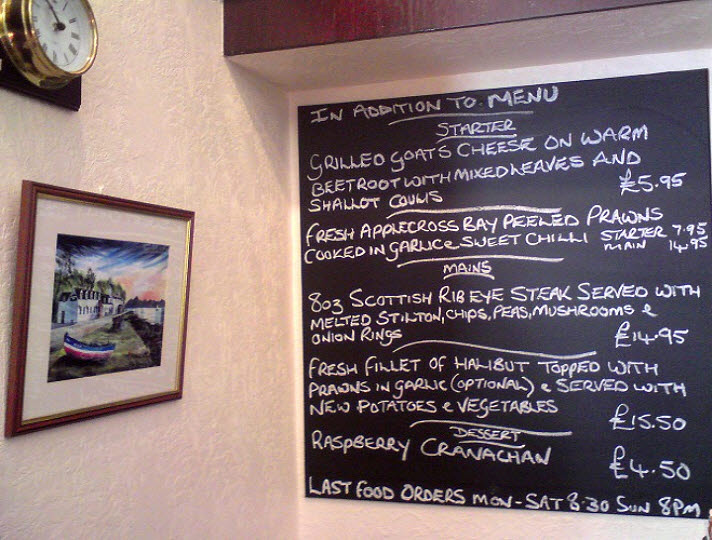 IN ADDITION TO MENU
STARTER
GRILLED GOATS CHEESE ON WARM
BEETROOT WITH MIXED LEAVES AND
SHALLOT COULIS £5.95
FRESH APPLECROSS BAY PEELED PRAWNS
COOKED IN GARLIC & SWEET CHILLI STARTER 7.95
MAIN 14.95
MAINS
8oz SCOTTISH RIB EYE STEAK SERVED WITH
MELTED STILTON, CHIPS, PEAS, MUSHROOMS &
ONION RINGS £14.95
FRESH FILLET OF HALIBUT TOPPED WITH
PRAWNS IN GARLIC (OPTIONAL) & SERVED WITH
NEW POTATOES & VEGETABLES £15.50
DESSERT
RASPBERRY CRANACHAN £4.50
LAST FOOD ORDERS MON - SAT 8.30 SUN 8PM